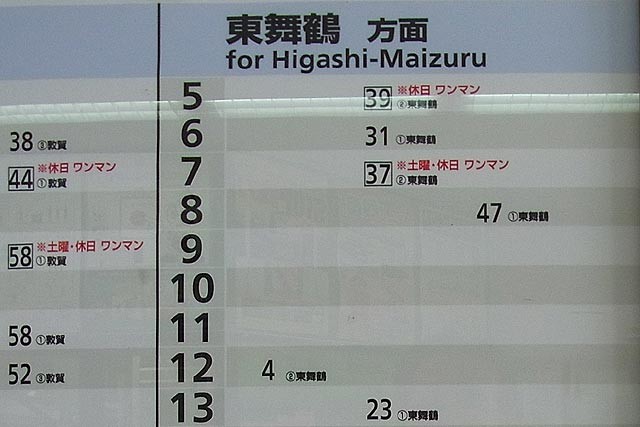 東舞鶴 方面
for Higashi-Maizuru
5 39 ※休日 ワンマン
②東舞鶴
38 ③敦賀 6 31 ①東舞鶴
44 ※休日 ワンマン
①敦賀
7 37 ※土曜・休日 ワンマン
②東舞鶴
8 47 ①東舞鶴
58 ※土曜・休日 ワンマン
①敦賀
9
10
58 ①敦賀 11
52 ③敦賀 12 4 ②東舞鶴
13 23 ①東舞鶴